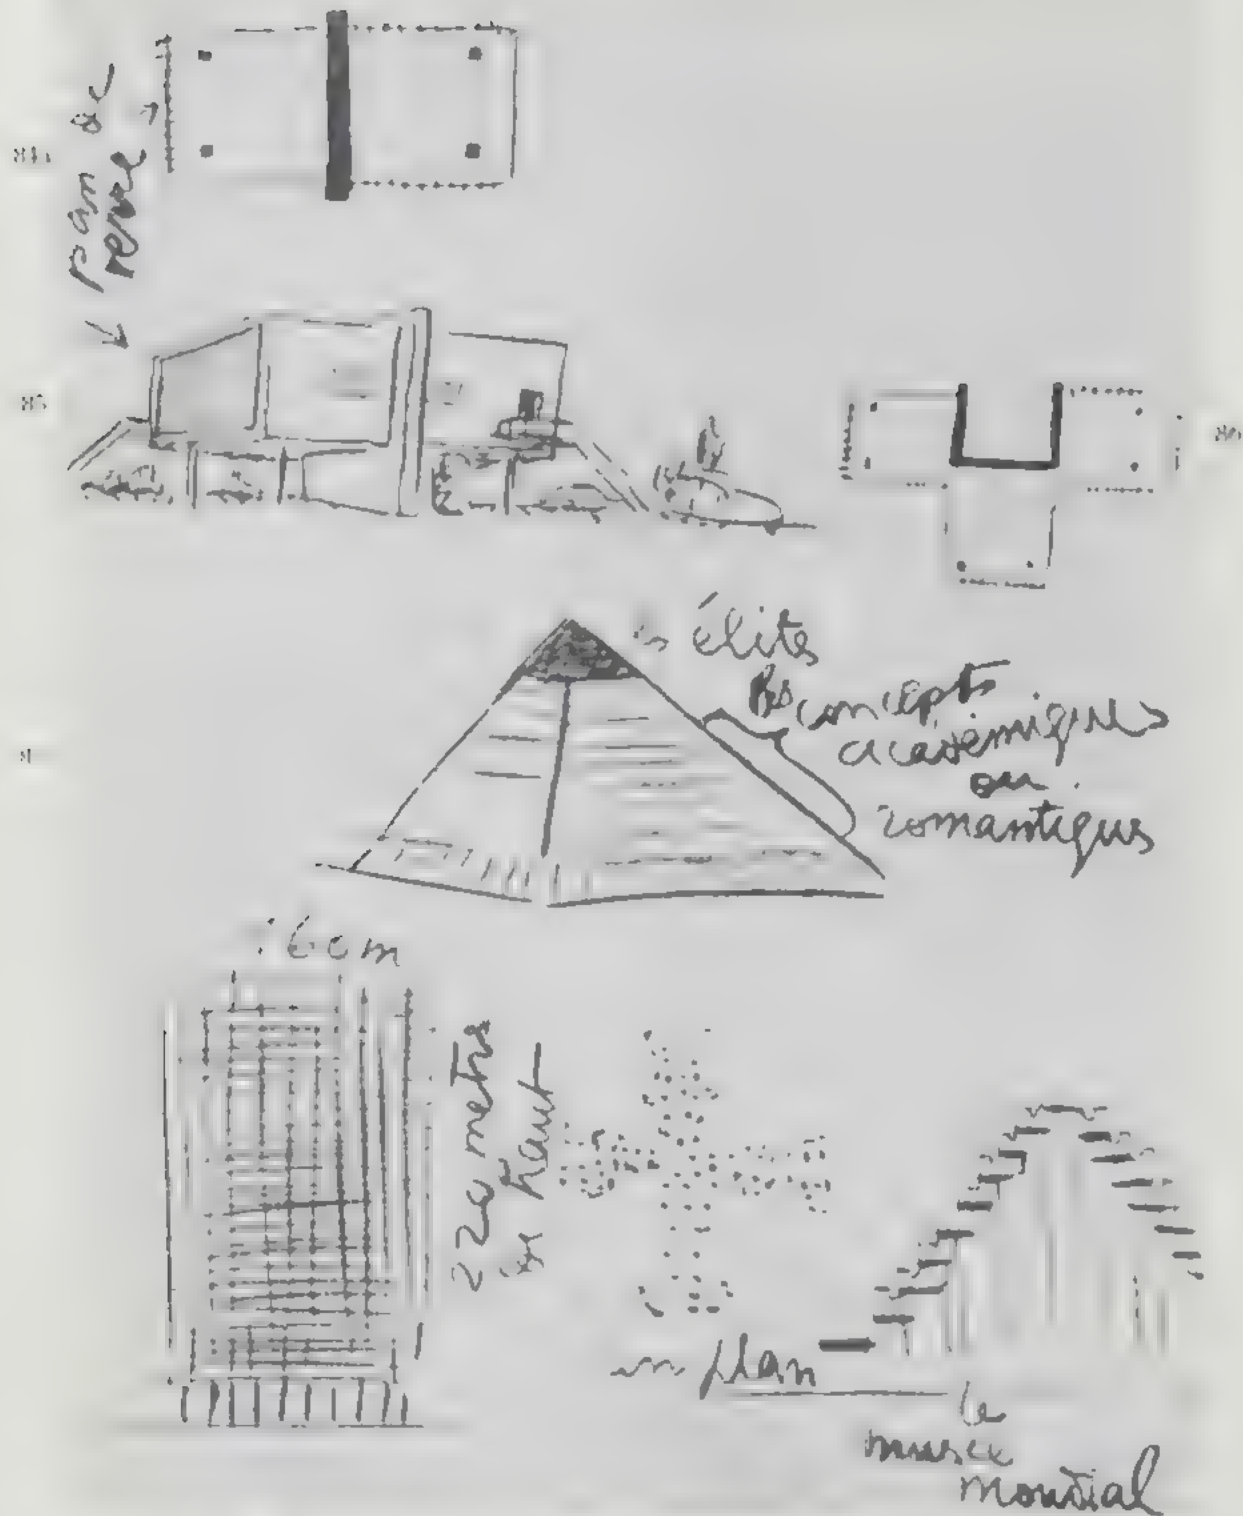 pan de
verre
85
86
les élites
les concepts
académiques
ou
romantiques
220 mètres
de haut
en plan
le
musée
mondial